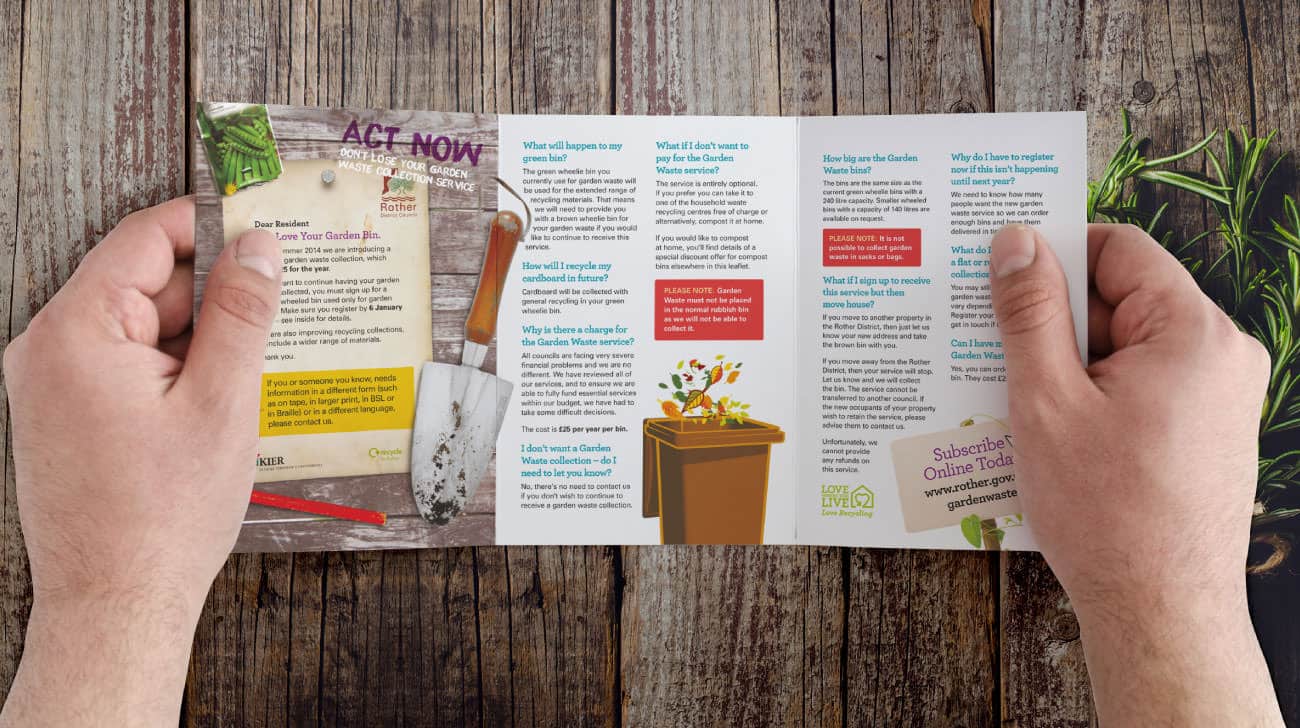 ACT NOW
DON'T LOSE YOUR GARDEN
WASTE COLLECTION SERVICE
Rother
District Council
Dear Resident
Love Your Garden Bin.
mmer 2014 we are introducing a
garden waste collection, which
25 for the year.
ant to continue having your garden
ollected, you must sign up for a
wheeled bin used only for garden
Make sure you register by 6 January
see inside for details.
ere also improving recycling collections,
include a wider range of materials.
ank you.
If you or someone you know, needs
information in a different form (such
as on tape, in larger print, in BSL or
in Braille) or in a different language,
please contact us.
KIER
recycle
What will happen to my
green bin?
The green wheelie bin you
currently use for garden waste will
be used for the extended range of
recycling materials. That means
we will need to provide you
with a brown wheelie bin for
your garden waste if you would
like to continue to receive this
service.
How will I recycle my
cardboard in future?
Cardboard will be collected with
general recycling in your green
wheelie bin.
Why is there a charge for
the Garden Waste service?
All councils are facing very severe
financial problems and we are no
different. We have reviewed all of
our services, and to ensure we are
able to fully fund essential services
within our budget, we have had to
take some difficult decisions.
The cost is £25 per year per bin.
I don't want a Garden
Waste collection – do I
need to let you know?
No, there's no need to contact us
if you don't wish to continue to
receive a garden waste collection.
What if I don't want to
pay for the Garden
Waste service?
The service is entirely optional.
If you prefer you can take it to
one of the household waste
recycling centres free of charge or
alternatively, compost it at home.
If you would like to compost
at home, you'll find details of a
special discount offer for compost
bins elsewhere in this leaflet.
PLEASE NOTE: Garden
Waste must not be placed
in the normal rubbish bin
as we will not be able to
collect it.
How big are the Garden
Waste bins?
The bins are the same size as the
current green wheelie bins with a
240 litre capacity. Smaller wheeled
bins with a capacity of 140 litres are
available on request.
PLEASE NOTE: It is not
possible to collect garden
waste in sacks or bags.
What if I sign up to receive
this service but then
move house?
If you move to another property in
the Rother District, then just let us
know your new address and take
the brown bin with you.
If you move away from the Rother
District, then your service will stop.
Let us know and we will collect
the bin. The service cannot be
transferred to another council. If
the new occupants of your property
wish to retain the service, please
advise them to contact us.
Unfortunately, we
cannot provide
any refunds on
this service.
LOVE
WHERE YOU
LIVE
Love Recycling
Why do I have to register
now if this isn't happening
until next year?
We need to know how many
people want the new garden
waste service so we can order
enough bins and have them
delivered in
What do I
a flat or
collection
You may still
garden waste
vary depending
Register your
get in touch if
Can I have
Garden Waste
Yes, you can
bin. They cost £2
Subscribe
Online Toda
www.rother.gov.
gardenwaste